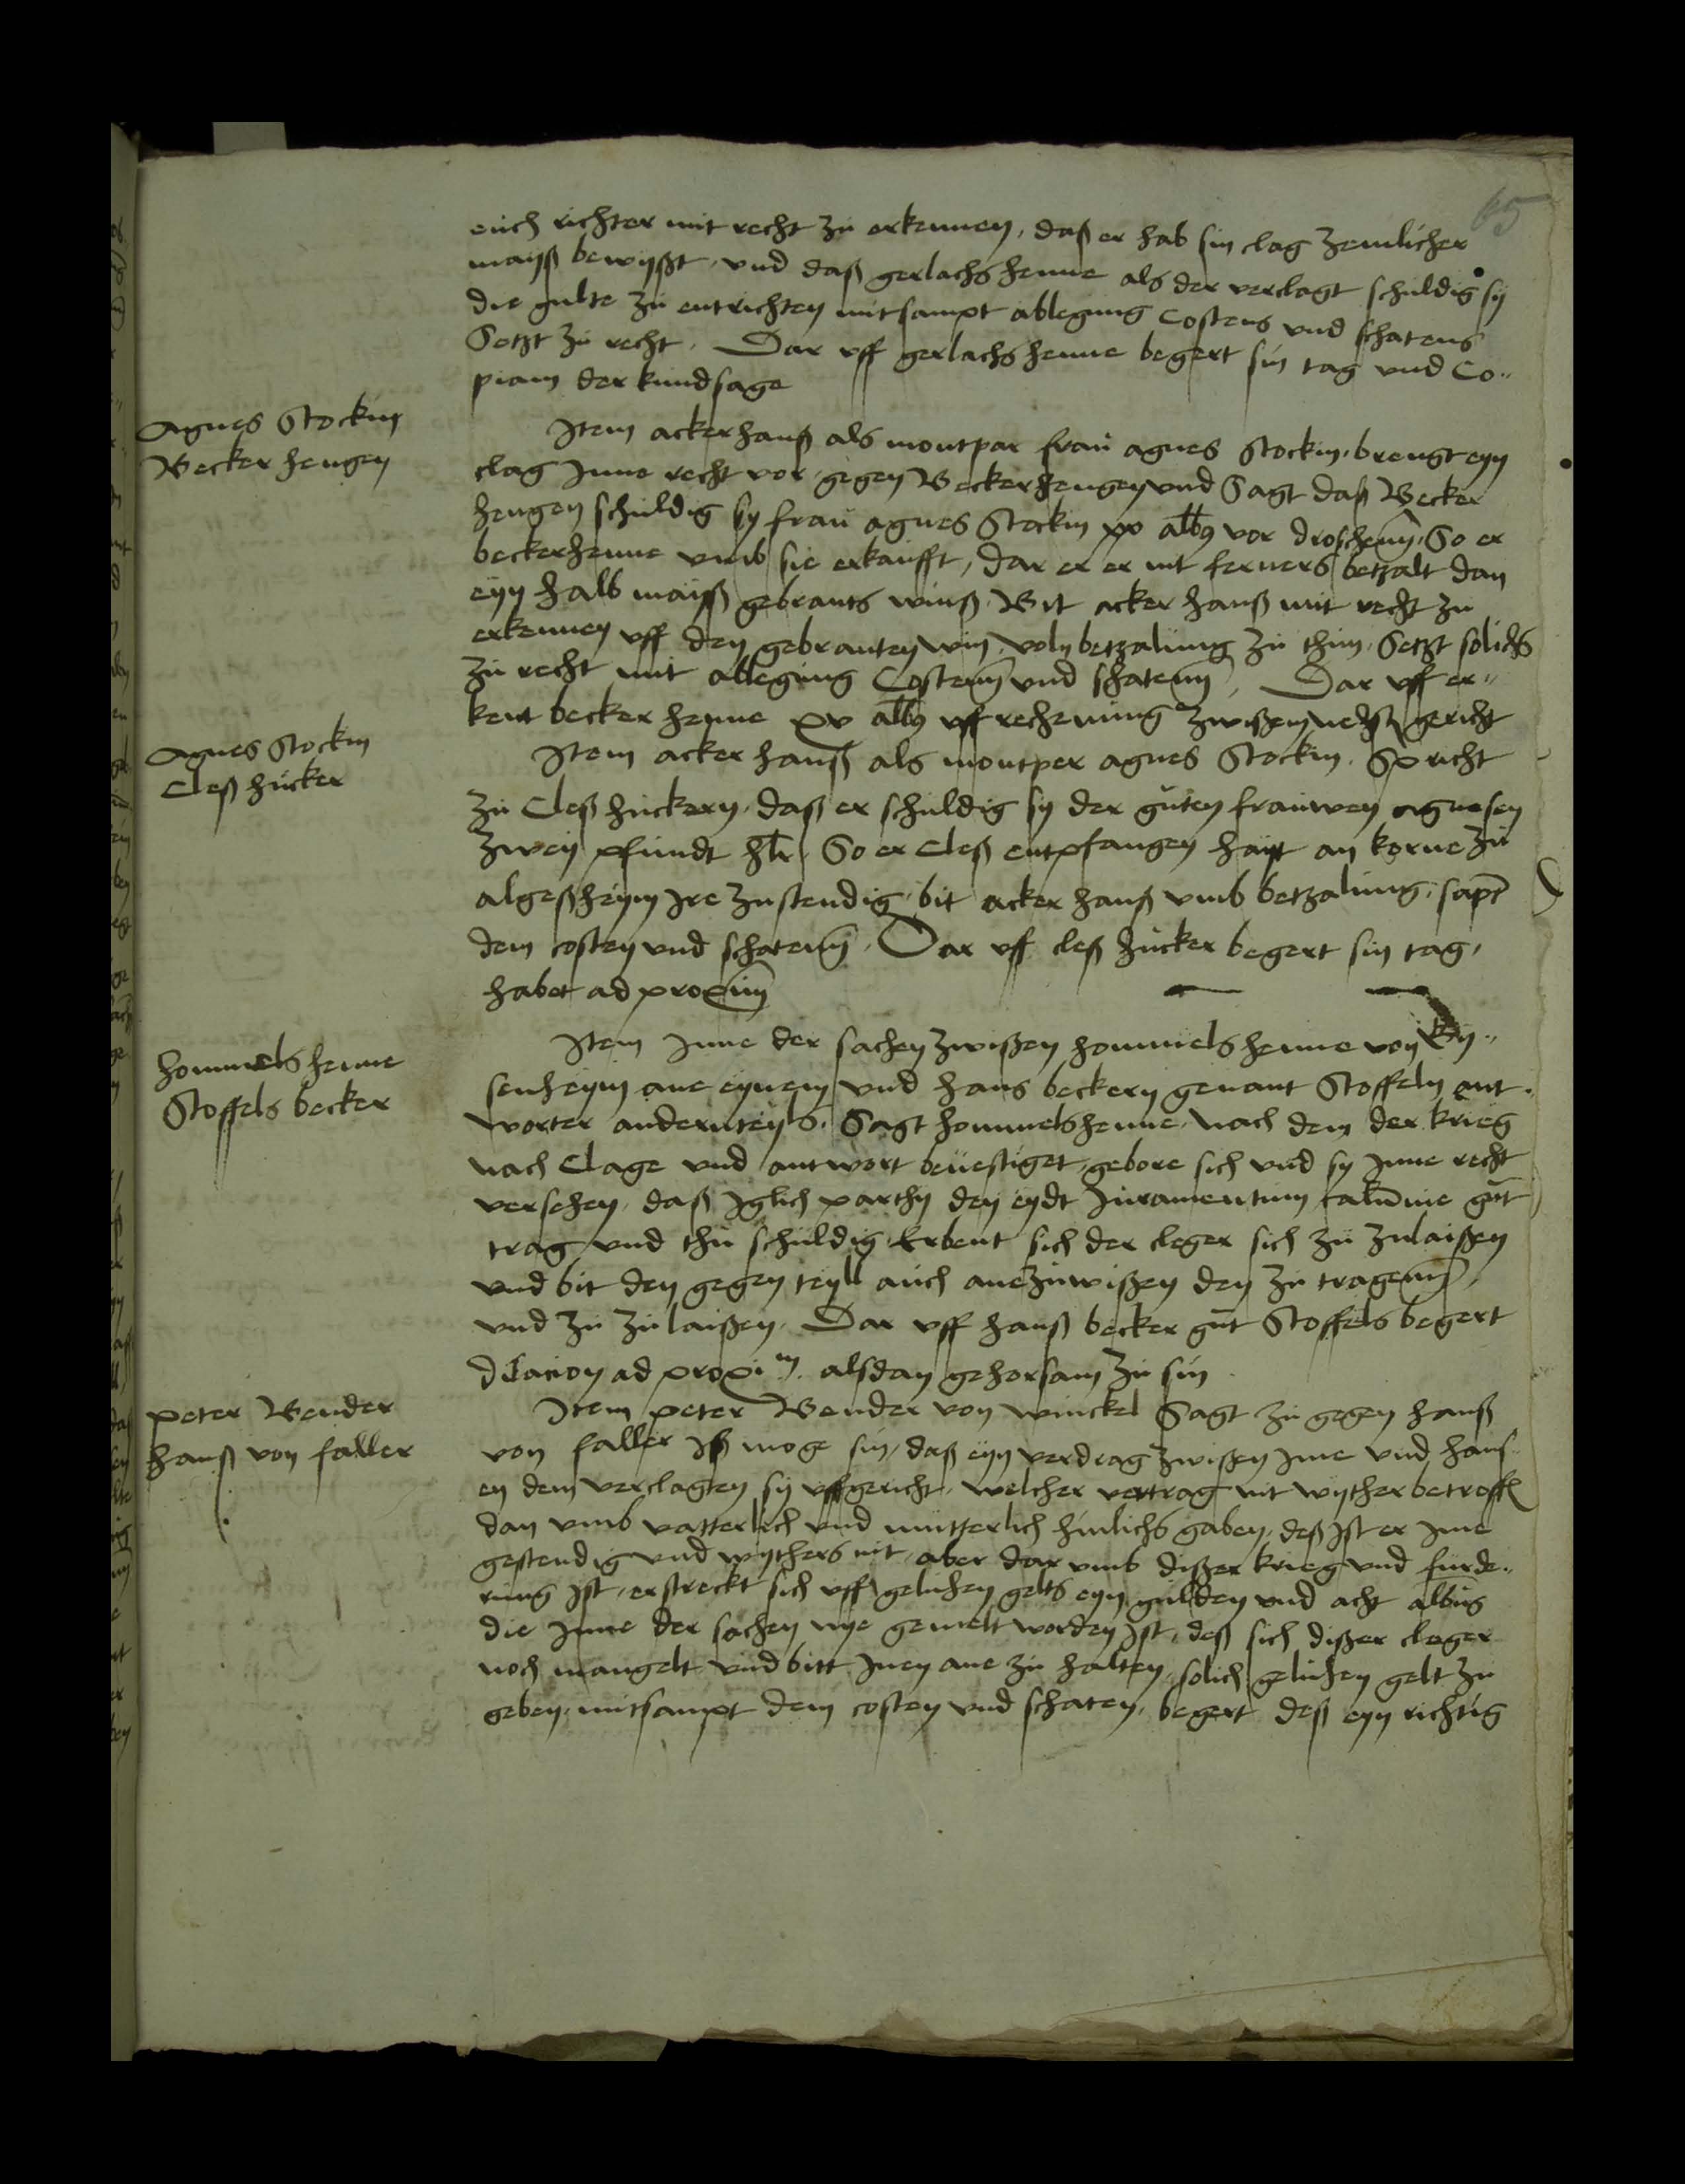 65
euch richter mit recht zu erkennen, daß er hab sin clag zemlicher
mayß bewyßt, und daß gerlachs henne als der verclagt schuldig sy
die gulte zu entrichten mitsampt ablegung Costens und schatens
Setzt zu recht. Dar uff gerlachs henne begert sin tag und Co„
piam der kundsage
Agnes Stockin
Becker hengen
Item acker hanß als montpar frau agnes Stockin, brengt eyn
clag Inne recht vor, gegen Becker hengen und Sagt daß Becker
hengen schuldig sy frau agnes Stockin xv albȝ vor droschenn̄, So er
becker henne umb sie erkaufft, dar er er nit ferners betzalt dan
eyn halb mayß gebrants winß, Bit acker hanß mit recht zu
erkennen uff den gebranten win, voln betzalung zu thun, Setzt solichs
zu recht mit ablegung Costenn̄ und schatenn̄, Dar uff er„
kent becker henne xv albȝ uff rechenung zwißen nehst gericht
Agnes Stockin
Cleß hucker
Item acker hanß als montper agnes Stockin, Spricht
zu Cleß huckern, daß er schuldig sy der guten frauwen agnesen
zwey pfundt hlr, So er Cleß entpfangen hayt an korne zu
algeßheym Ire zustendig, bit acker hanß umb betzalung, sapt
dem costen und schatenn̄, Dar uff cleß hucker begert sin tag,
habet ad proxim̄
hommels henne
Stoffels becker
Item Inne der sachen zwißen hommels henne von Ey„
senheym ane eynem und hans beckern genant Stoffeln ant„
worter andernteyls, Sagt hommels henne, nach dem der krieg
nach Clage und antwort beuestiget, gebore sich und sy Inne recht
versehen, daß Iglich parthy den eydt Juramentum calu̅nie gnt̄
trag und thu schuldig, Erbeut sich der cleger sich zu zulaißen
und bit den gegen teyll auch anezuwißen den zu tragenn̄,
und zu zulaißen, Dar uff hanß becker gnt̄ Stoffels begert
dilacion ad proxim, alsdan gehorsam zu sin
peter Bender
hanß von faller
Item peter Bender von winckel Sagt zu gegen hanß
von faller Iß moge sin, daß eyn verdrag zwißen Ime und hans„
en dem verclagten sy uffgericht, welcher vertrag nit wyther betroffe
dan umb vatterlich und mutterlich hinlichs gaben, deß Ist er Ime
gestendig und wythers nit, aber dar umb dißer krieg und furde„
rung Ist, erstreckt sich uff geluhen gelts eyn gulden und acht albus
die Inne der sachen nye gemelt worden Ist, deß sich dißer cleger
noch mangelt und bitt Inen ane zu halten, solich geluhen gelt zu
geben, mitsampt dem costen und schaten, begert deß eyn richtig